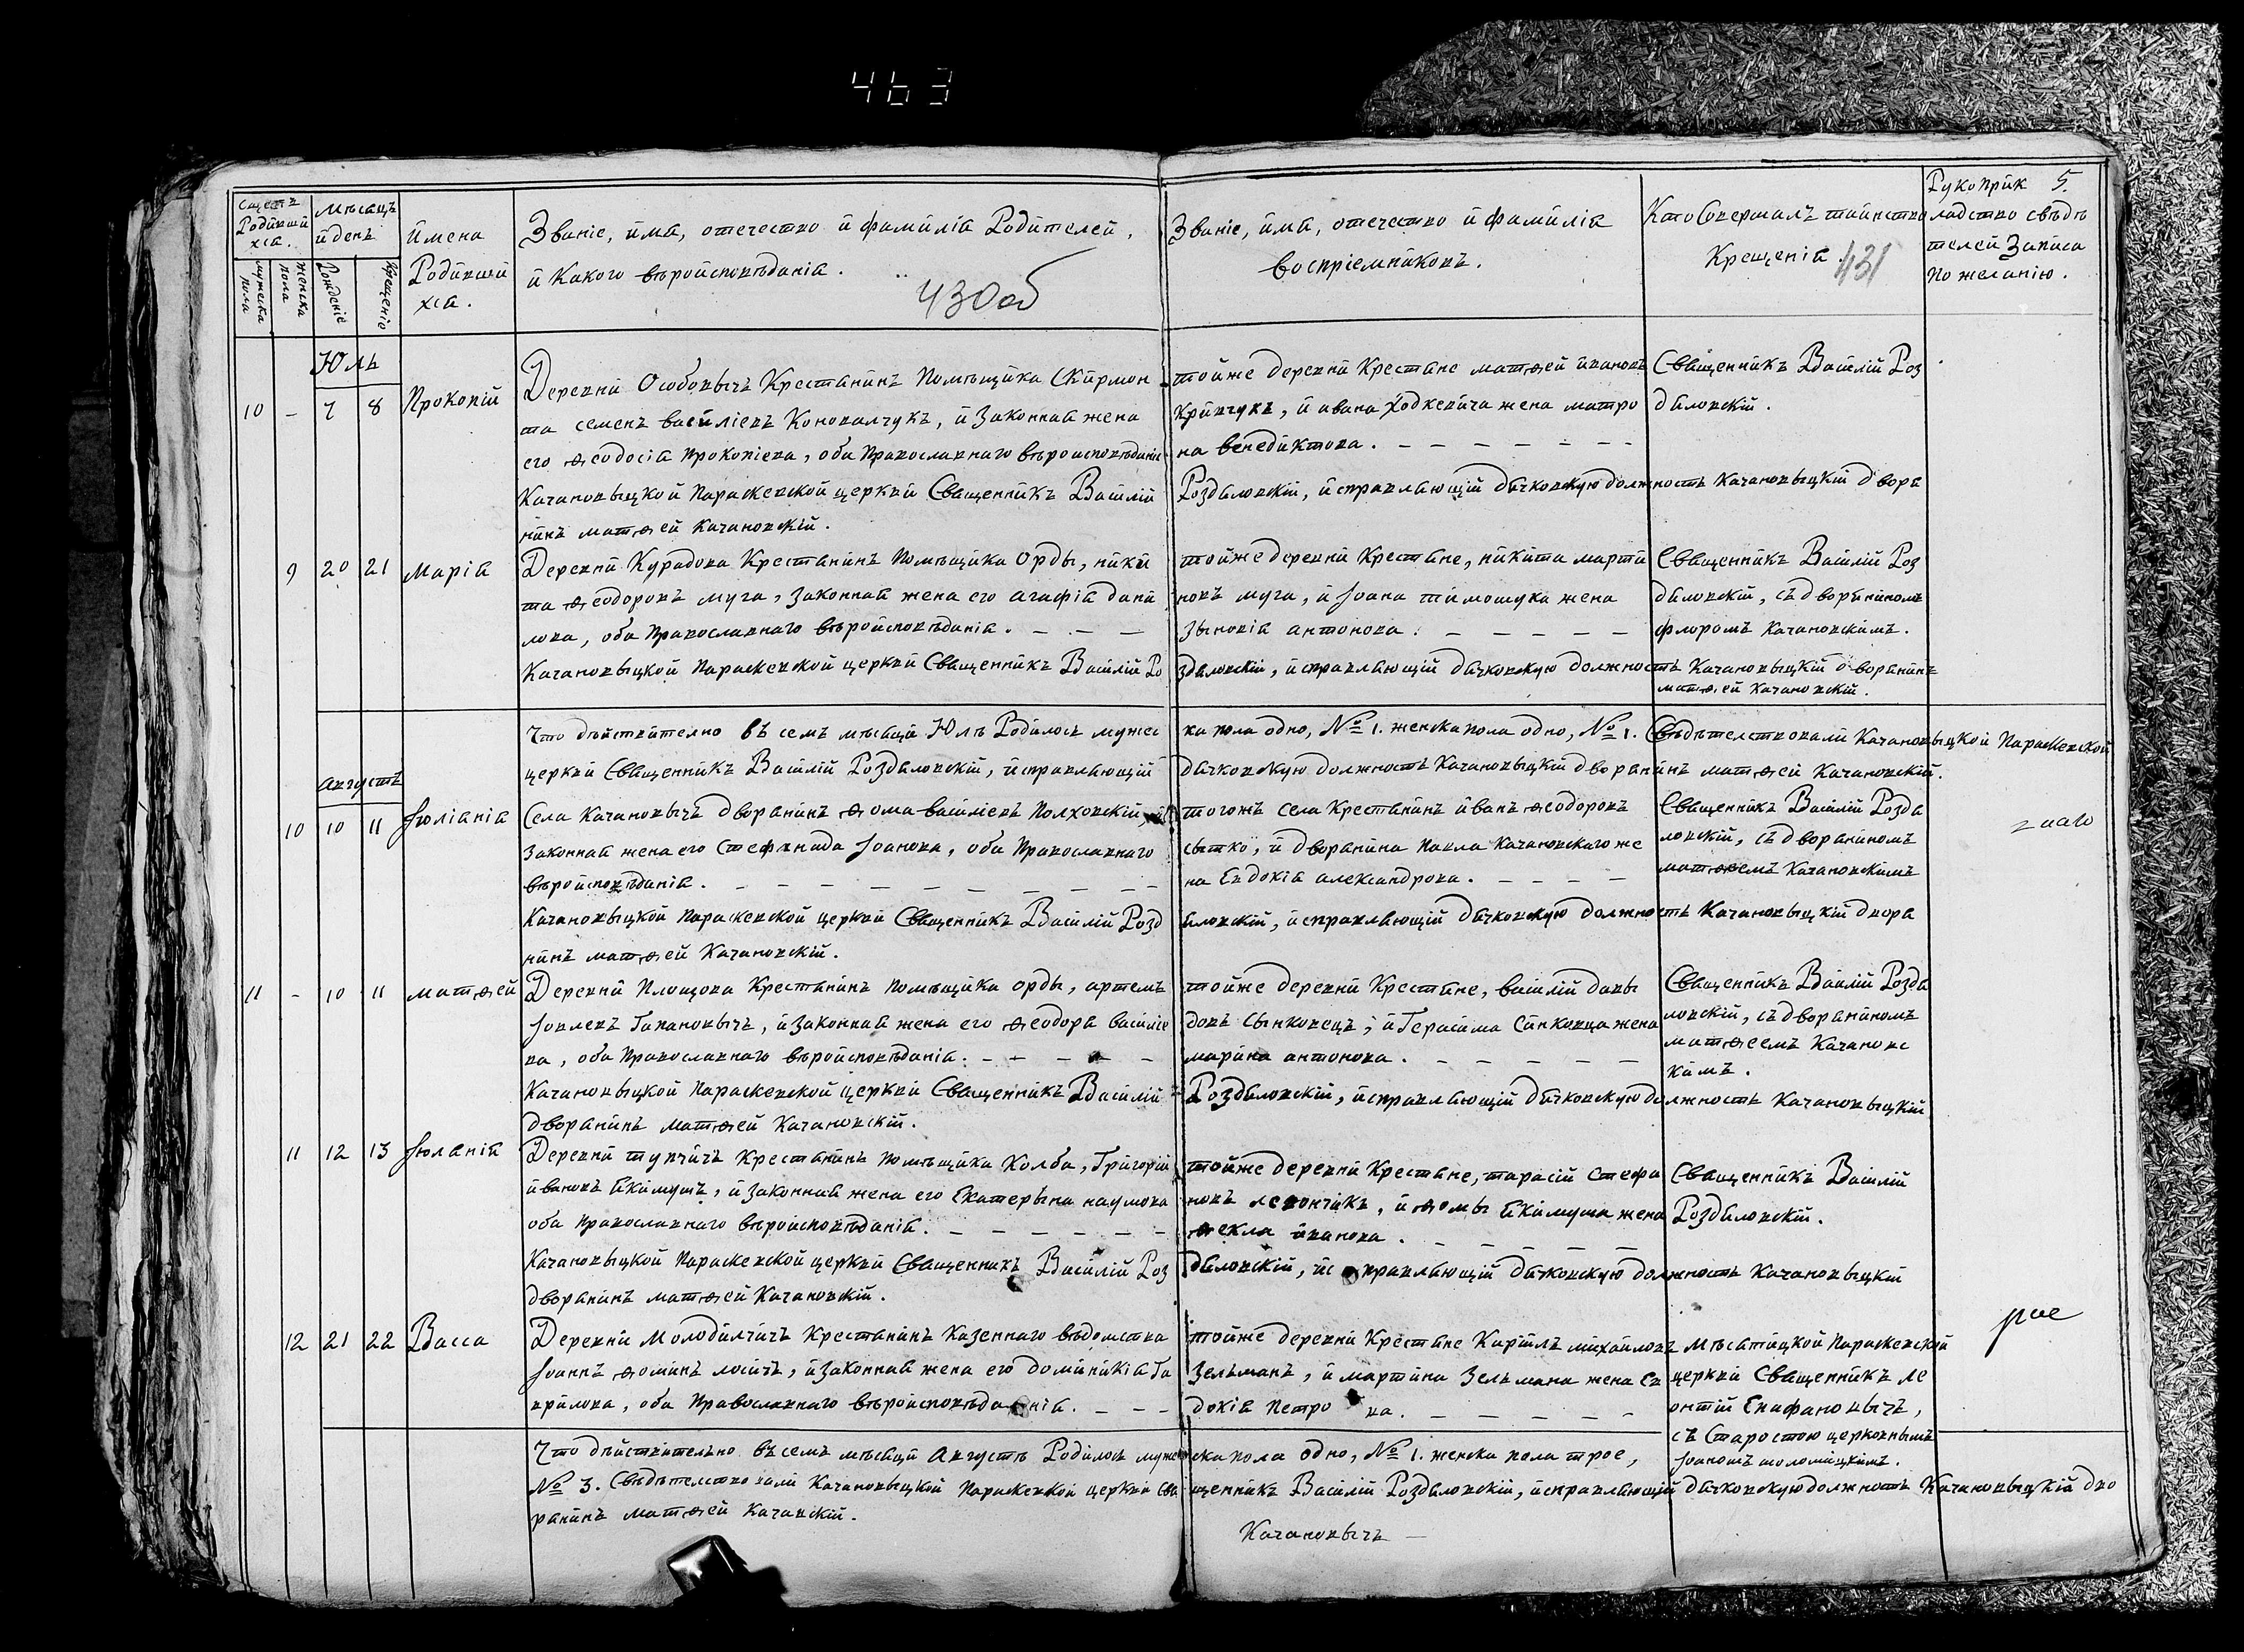 463
Рукоприк 5.
Счетъ Родивши хся.
Мѣсяцъ й день
Ймена Родивши хся.
Званіе, ймя, отечество й фамилія Родителей,
й Какого вѣройсповѣданія.
430об
Званіе, ймя, отечество й фамилія
воспріемниковъ.
Кто Совершалъ тайнство
Крещенія
431
ладство свѣдѣ
телей Записа
по желанію.
мужеска пола
женска пола
Рожденіе
Крещеніе
Юль
10 – 7 8 Прокопій
Деревни Особовычъ Крестянинъ Помѣщика Скирмон
та семенъ василіевъ Коновалчукъ, й Законная жена
его Ѳеодосія Прокопіева, оба Православнаго вѣроисповѣданія
тойже деревни Крестяне матѳей йвановъ
Кривчукъ, й йвана Ходкевича жена матро
на венедиктова. – – – – – – –
Священникъ Василій Роз
дяловскій.
Качановыцкой Параскевской церкви Священникъ Василій Роздяловскій, йсправляющій дячковскую должность Качановыцкій дворя
нинъ матѳей Качановскій.
9 20 21 Марія
Деревни Курадова Крестянинъ Помѣщика Орды, ники
та Ѳеодоровъ муга, Законная жена его агафія дани
лова, оба Православнаго вѣройсповѣданія. – – –
тойже деревни Крестяне, никита марти
новъ муга, й Іоана тимошука жена
Зыновія антонова. – – – – –
Священникъ Василій Роз
дяловскій, съ дворяниномъ
флоромъ Качановскимъ.
Качановыцкой Параскевской церкви Священникъ Василій Роздяловскій, йсправляющій дячковскую должность Качановыцкій дворянинъ
матѳей Качановскій.
Что дѣйствително въ семъ мѣсяци Юлѣ Родилось мужеска пола одно, № 1. женска пола одно, № 1. Свѣдѣтелствовали Качановыцкой Параскевской
церкви Священникъ Василій Роздяловскій, йсправляющій дячковскую должность Качановыцкій дворянинъ матѳей Качановскій.
августъ
10 10 11 Іюліанія
Села Качановычъ дворянинъ Ѳома василіевъ Полховскій, й
Законная жена его Стефанида Іоанова, оба Православнаго
вѣройсповѣданія. – – – – – – – –
тогожъ села Крестянинъ йванъ Ѳеодоровъ
сытко, й дворянина Павла Качановскаго же
на Евдокія александрова. – – – –
Священникъ Василій Роздя
ловскій, съ дворяниномъ
матѳеемъ Качановскимъ
Качановыцкой Параскевской церкви Священникъ Василій Роздяловскій, йсправляющій дячковскую должность Качановыцкій дворя
нинъ матѳей Качановскій.
11 – 10 11 матѳей
Деревни Площова Крестянинъ помѣщика орды, артемъ
Іовлевъ Гапановычъ, й Законная жена его Ѳеодора василіе
ва, оба Православнаго вѣройсповѣданія. – – – – –
тойже деревни Крестяне, василій давы
довъ Сынковецъ, й Герасима Синковца жена
марина антонова. – – – – –
Священникъ Василій Роздя
ловскій, съ дворяниномъ
матѳеемъ Качановс
кимъ.
Качановыцкой Параскевской церкви Священникъ Василій Роздяловскій, йсправляющій дячковскую должность Качановыцкій
дворянинъ матѳей Качановскій.
11 12 13 Іюлянія
Деревни тупчичъ Крестянинъ помѣщика Колба, Григорій
йвановъ Якимушъ, й Законная жена его Екатерына наумова
оба Православнаго вѣройсповѣданія. – – – – – –
тойже деревни Крестяне, тарасій стефа
новъ левончикъ, й Ѳомы Якимуша жена
Ѳекла йванова. – – – – –
Священникъ Василій
Роздяловскій.
Качановыцкой Параскевской церкви Священникъ Василій Роздяловскій, йсправляющій дячковскую должность Качановыцкій
дворянинъ матѳей Качановскій.
12 21 22 Васса
Деревни Молодилчичъ Крестянинъ Казеннаго вѣдомства
Іоаннъ Ѳоминъ лосичъ, й Законная жена его доминикія Га
врилова, оба Православнаго вѣройсповѣданія. – – –
тойже деревни Крестяне Кирилъ михайловъ
Зельманъ, й мартина Зельмана жена Ев
докія Петрова. – – – – –
Мѣсятицкой Параскевской
церкви Священникъ ле
онтій Епафановычъ,
съ Старостою церковнымъ
Что дѣйствительно въ семъ мѣсяци Августѣ Родилось мужеска пола одно, № 1. женска пола трое,
№ 3. Свѣдѣтелствовали Качановыцкой Параскевской церкви Священникъ Василій Роздяловскій, йсправляющій дячковскую должность Качановыцкій дво
рянинъ матѳей Качанскій.
Качановычъ –